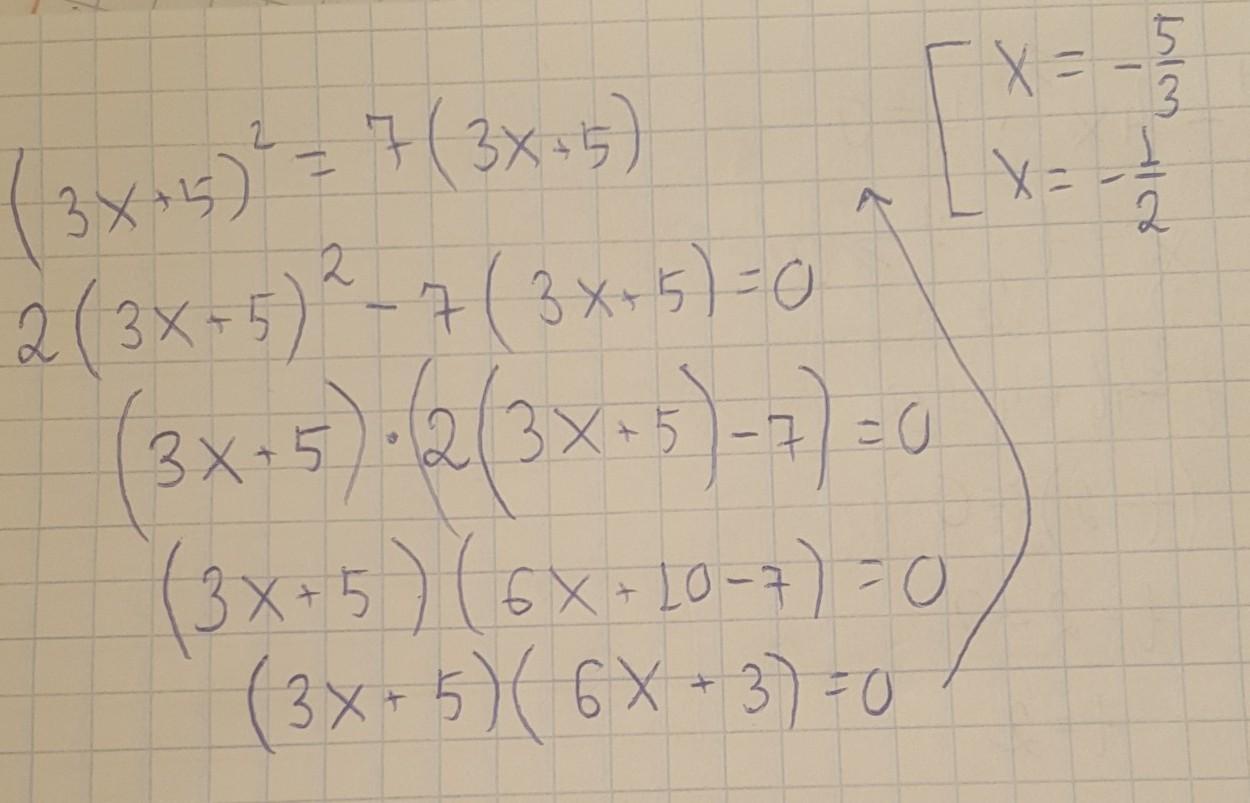 (3x+5)² = 7(3x+5)
2(3x+5)² - 7(3x+5) = 0
(3x+5)·(2(3x+5)-7) = 0
(3x+5)(6x+10-7) = 0
(3x+5)(6x+3) = 0
[ x = -5/3
x = -1/2